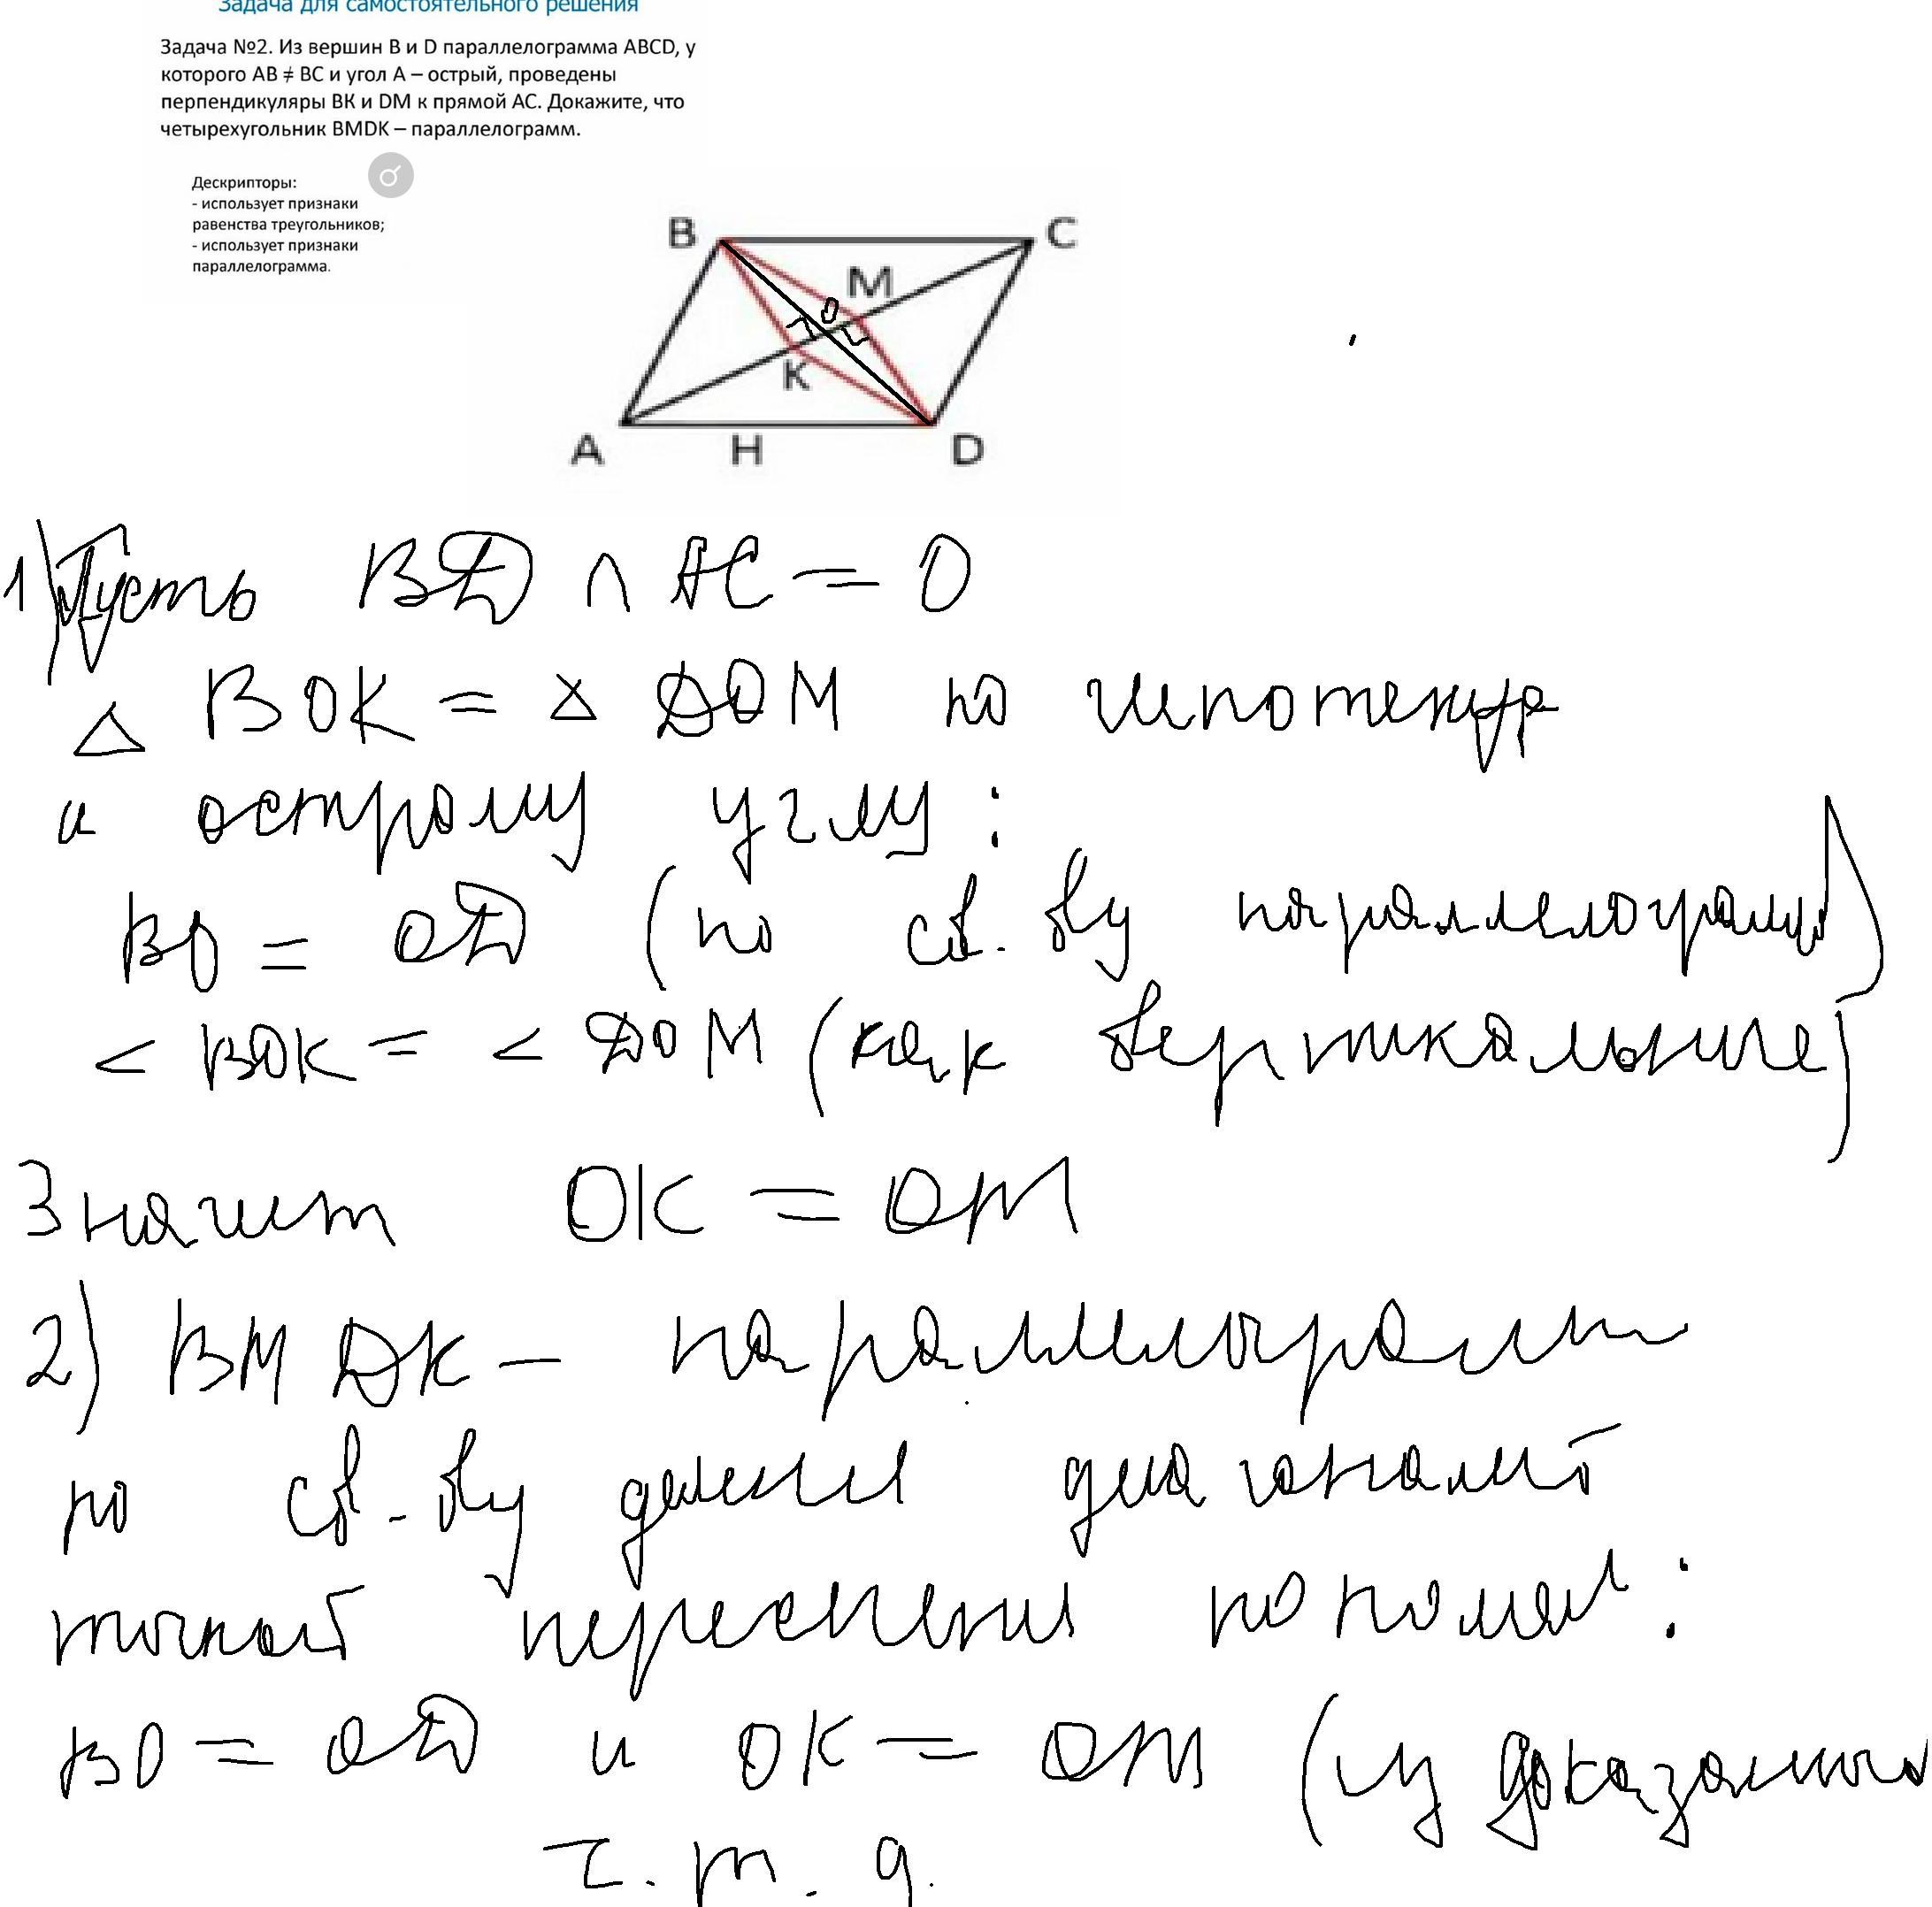 Задача для самостоятельного решения
Задача №2. Из вершин В и D параллелограмма ABCD, у
которого AB ≠ BC и угол А – острый, проведены
перпендикуляры ВК и DM к прямой АС. Докажите, что
четырехугольник BMDK – параллелограмм.
Дескрипторы:
- использует признаки
равенства треугольников;
- использует признаки
параллелограмма.
B
C
M
O
K
A
H
D
1) Пусть BD ∩ AC = O
△ BOK = △ DOM по гипотенузе
и острому углу:
BO = OD (по св-ву параллелограмма)
< BOK = < DOM (как вертикальные)
Значит OK = OM
2) BMDK – параллелограмм
по св-ву деления диагоналей
точкой пересечения пополам:
BO = OD и OK = OM (из доказанного
ч.т.д.